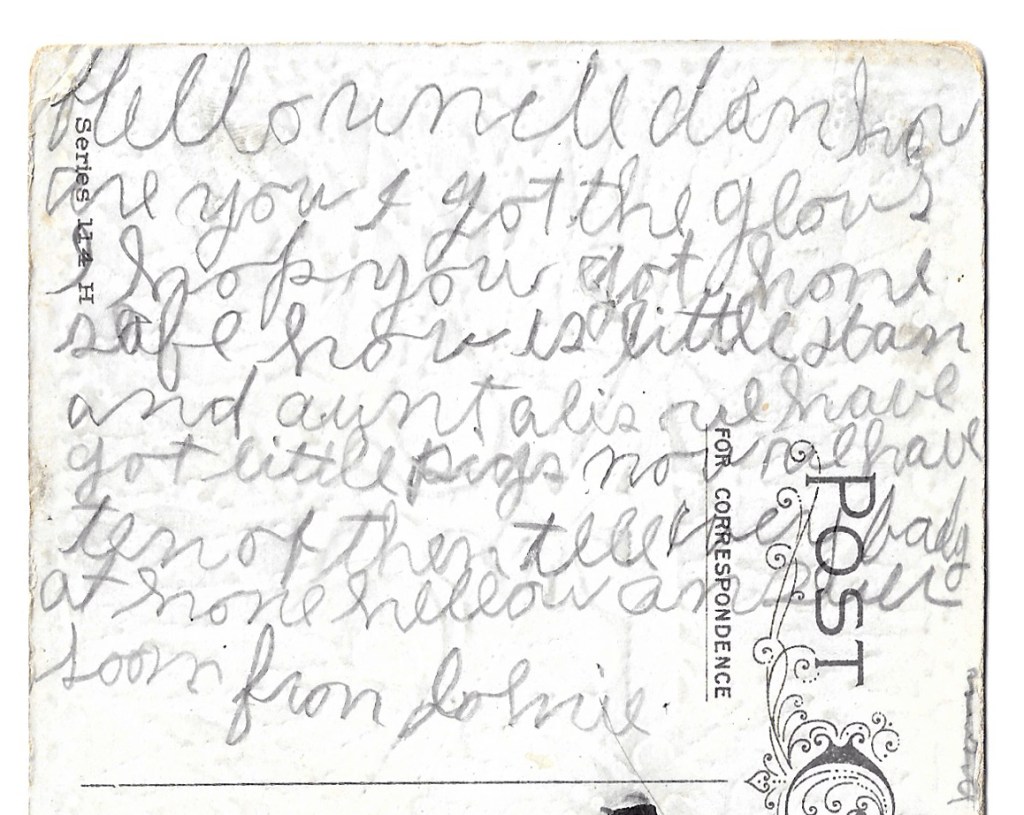 Hello uncle dan how
are you I got the glovs
i hop you got home
safe how is little stan
and aunt alis we have
got little pigs now we have
ten of them tell ever bady
at home hellow answer
soon from Johnie
Series 114 H
FOR CORRESPONDENCE
POST